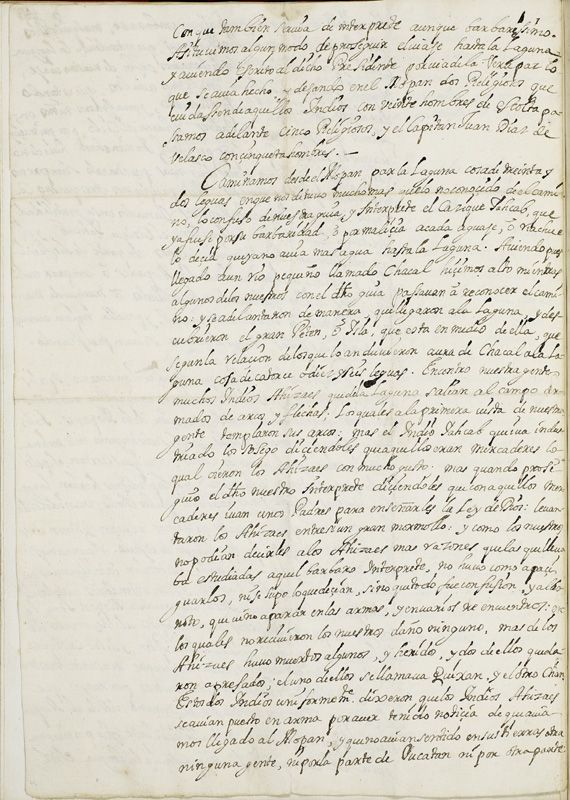 Con que tambien seruia de interprete aunque barbarissimo.
Assi tuvimos algun modo de proseguir el viase hasta la Laguna
y aviendo escrito al dicho Presidente por via de la Verapaz lo
que se avia hecho y dexando en el Mopan dos Religiosos que
cuydassen de aquellos Indios con veinte hombres de Scolta pa-
samos adelante cinco Religiosos, y el Capitan Juan Diaz de
Velasco con cinquenta hombres.
Caminamos desde el Mopan para la Laguna cosa de treinta y
dos leguas en que nos detuvo mucho mas que lo no conocido de el cami-
no, lo confuso de nuestra guia, y Interprete el Cazique Tahcab, que
ya fuesse por su barbaridad, o por malicia a cada aguaje, o riachue-
lo decia que ya no avia mas agua hasta la Laguna. Aviendo pues
llegado a un Rio pequeño llamado Chacal hizimos alto mientras
algunos de los nuestros con el dho guia passavan à reconocer el cami-
no: y se adelantaron de manera, que llegaron a la Laguna, y des-
cubrieron el gran Peten, ò Isla, que esta en medio de ella, que
segun la relacion de los que lo anduvieron avra de Chacal a la La-
guna cosa de catorce o diez y seis leguas. Encontro nuestra gente
muchos Indios Ahizaes que de la Laguna salian al campo ar-
mados de arcos y flechas: Los quales a la primera vista de nuestra
gente templaron sus arcos: mas el Indio Tahcab que iva indus-
triado los sosego diciendoles que aquellos eran mercaderes lo-
qual oieron los Ahizaes con mucho gusto: mas quando prosi-
guio el dho nuestro Interprete diciendoles que con aquellos mer-
caderes ivan unos Padres para enseñarles la Ley de Dios: levan-
taron los Ahizaes entre si un gran mormollo: y como los nuestros
no podian decirles a los Ahizaes mas razones que las que lleva-
ba estudiadas aquel barbaro Interprete, no huvo como apaci-
guarlos, ni se supo lo que decian, sino que todo fue confusion, y albo-
roto, que vino a parar en las armas, y en varios re encuentros: de
los quales no recivieron los nuestros daño ninguno, mas de los
Ahizaes huvo muertos algunos, y heridos, y dos de ellos queda-
ron apresados; el uno de ellos se llamava Quixan, y el otro Chan.
Estos dos Indios uniformemte. dixeron que los Indios Ahizaes
se avian puesto en arma por aver tenido noticia de que avia-
mos llegado al Mopan, y que no avian sentido en sus tierras otra
ninguna gente, ni por la parte de Yucatan ni por otra parte